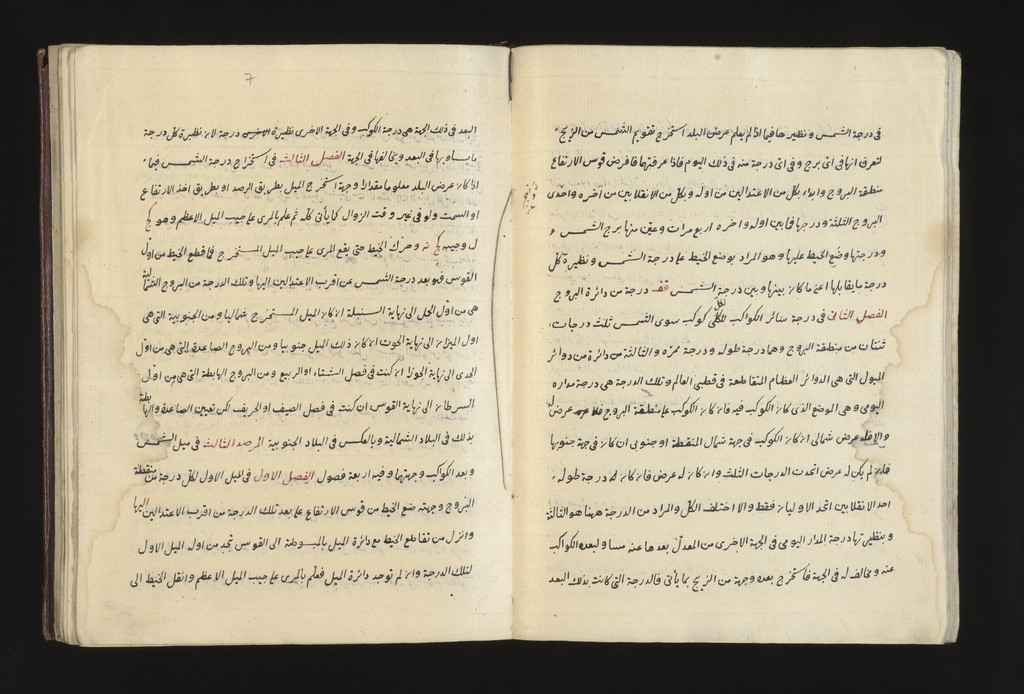 في درجة الشمس ونظيرها فيما اذا لم يعلم عرض البلد استخرج تقويم الشمس من الزيج
لتعرف انها في اي برج وفي اي درجة منه في ذلك اليوم فاذا عرفتها فافرض قوس الارتفاع
منطقة البروج وابداء بكل من الاعتدالين من اوله وبكل من الانقلابين من اخره واحدى
البروج الثلثة ودرجها فما بين اوله واخره اربع مرات وعين منها برج الشمس
ودرجتها وضع الخيط عليها وهو المراد بوضع الخيط على درجة الشمس ونظيرة كل
درجة ما يقابلها اعني ما كان بينها وبين درجة الشمس قف درجة من دائرة البروج
الفصل الثاني في درجة سائر الكواكب لكل كوكب سوى الشمس ثلث درجات
ثنتان من منطقة البروج وهما درجة طوله ودرجة ممره والثالثة من دائرة من دوائر
الميول التي هي الدوائر العظام المتقاطعة في قطبي العالم وتلك الدرجة هي درجة مداره
اليومي وهي الموضع الذي كان الكوكب فيه فان كان الكوكب على منطقة البروج فلا عرض له
والا فله عرض شمالي ان كان الكوكب في جهة شمال المنطقة او جنوبي ان كان في جهة جنوبها
فان لم يكن له عرض اتحدت الدرجات الثلث وان كان له عرض فان كان له درجة طوله
احد الانقلابين اتحد الاوليان فقط والا اختلف الكل والمراد من الدرجة ههنا هو الثالثة
وبنظيرتها درجة المدار اليومي في الجهة الاخرى من المعدل بعدها عنه مساو لبعد الكواكب
عنه ومخالف له في الجهة فاستخرج بعده وجهته من الزيج بما يأتي فالدرجة التي كانت بذلك البعد
٧
البعد في ذلك الجهة هي درجة الكوكب وفي الجهة الاخرى نظيرة درجة لان نظيرة كل درجة
ما يساويها في البعد ويخالفها في الجهة الفصل الثالث في استخراج درجة الشمس فيما
اذا كان عرض البلد معلوما مقدارا وجهة استخرج الميل بطريق الرصد او بطريق اخذ الارتفاع
او السمت ولو في غير وقت الزوال كما يأتي كله ثم علم بالمرى على جيب الميل الاعظم وهو كج
ل وجيبه كج نه وحرك الخيط حتى يقع المرى على جيب الميل المستخرج فما قطع الخيط من اول
القوس فهو بعد درجة الشمس عن اقرب الاعتدالين اليها وتلك الدرجة من البروج الشمالية
هي من اول الحمل الى نهاية السنبلة ان كان الميل المستخرج شماليا ومن الجنوبية التي هي
اول الميزان الى نهاية الحوت ان كان ذلك الميل جنوبيا ومن البروج الصاعدة التي هي من اول
الجدي الى نهاية الجوزا ان كنت في فصل الشتاء او الربيع ومن البروج الهابطة التي هي من اول
السرطان الى نهاية القوس ان كنت في فصل الصيف او الخريف لكن تعيين الصاعدة والهابطة
بذلك في البلاد الشمالية وبالعكس في البلاد الجنوبية المرصد الثالث في ميل الشمس
وبعد الكواكب وجهتها وفيه اربعة فصول الفصل الاول في الميل الاول لكل درجة من منطقة
البروج وجهته ضع الخيط من قوس الارتفاع على بعد تلك الدرجة من اقرب الاعتدالين اليها
وانزل من تقاطع الخيط مع دائرة الميل بالمبسوطة الى القوس تجد من اوله الميل الاول
لتلك الدرجة وان لم توجد دائرة الميل فعلم بالمرى على جيب الميل الاعظم وانقل الخيط الى